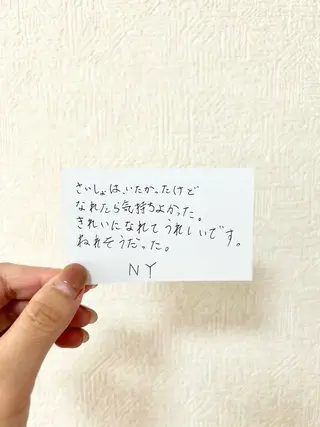 さいしょは、いたかったけど
なれたら気持ちよかった。
きれいになれてうれしいです。
ねれそうだった。
NY